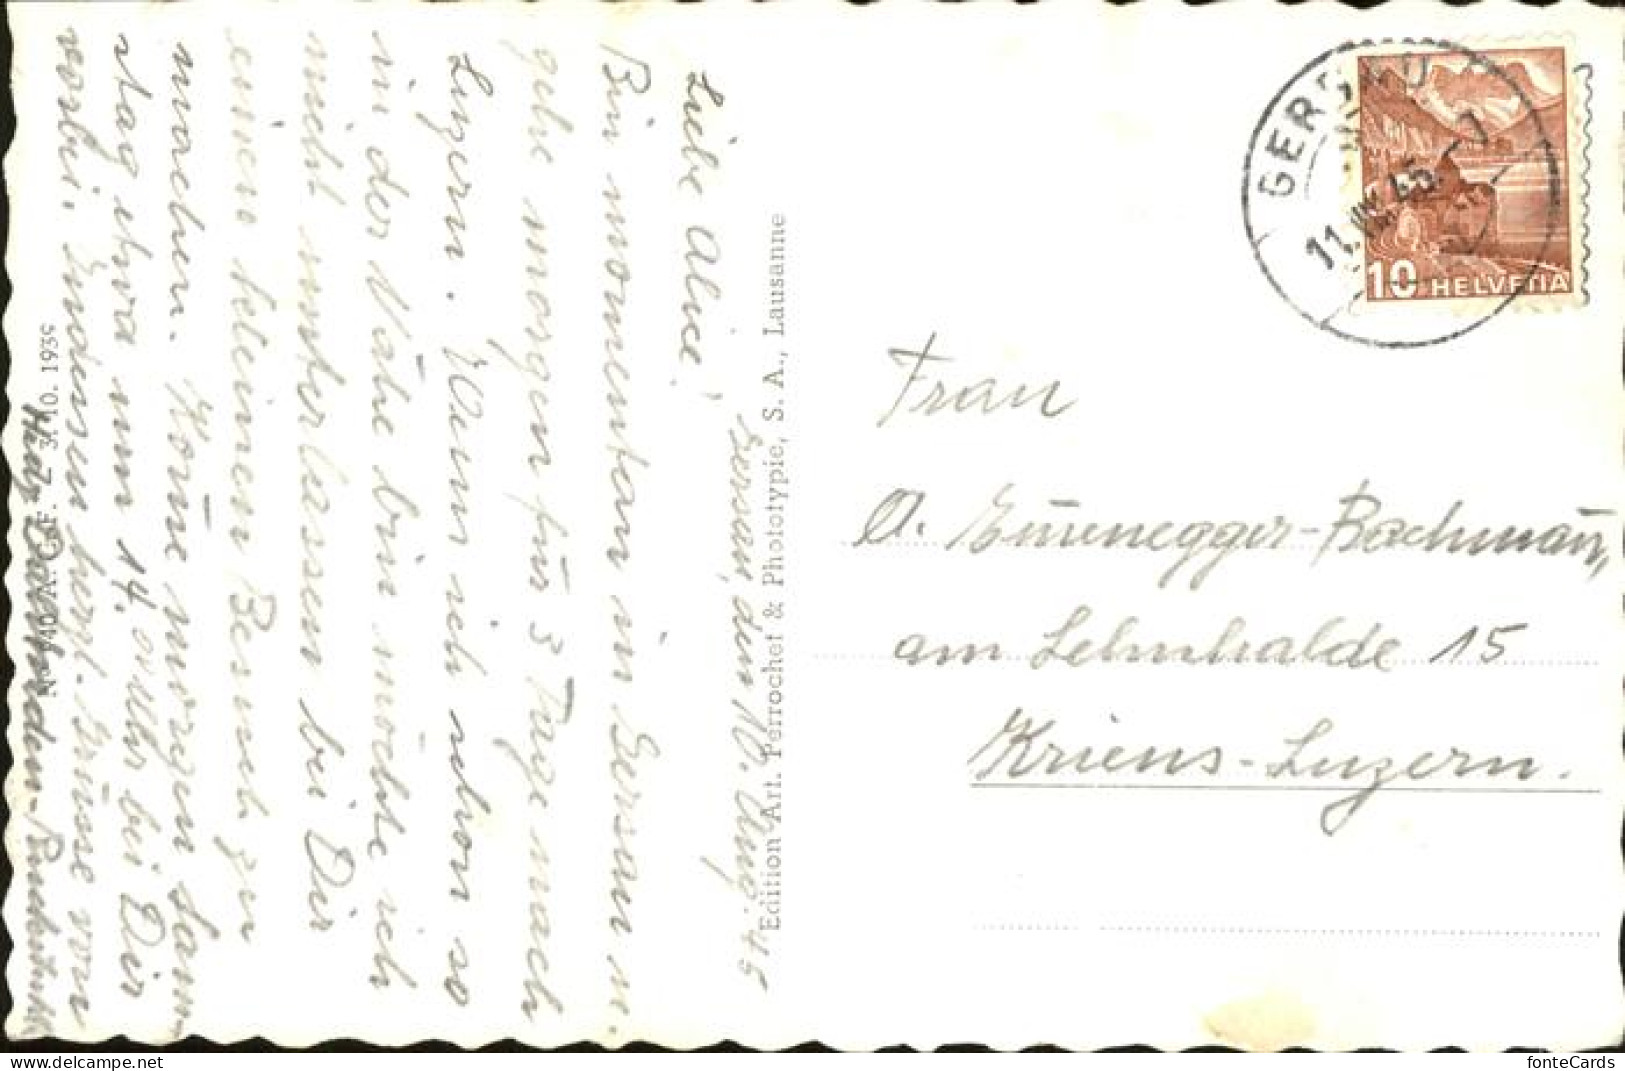 Gersau, den 10. Aug. 45
Liebe Alice!
Bin momentan in Gersau u.
gehe morgen für 3 Tage nach
Luzern. Wenn ich schon so
in der Nähe bin möchte ich
nicht unterlassen bei Dir
einen kleinen Besuch zu
machen. Käme morgen Sams-
tag etwa um 14. bei Dir
vorbei. Indessen herzl. Grüsse von
Hedy
Edition Art. Perrochet & Phototypie, S. A., Lausanne
3.10. 1939
GERSAU
11. VIII. 45. - 7
10 HELVETIA
Frau
A. Emmenegger-Bachmann,
am Lehnhalde 15
Kriens-Luzern.
www.delcampe.net
fonteCards